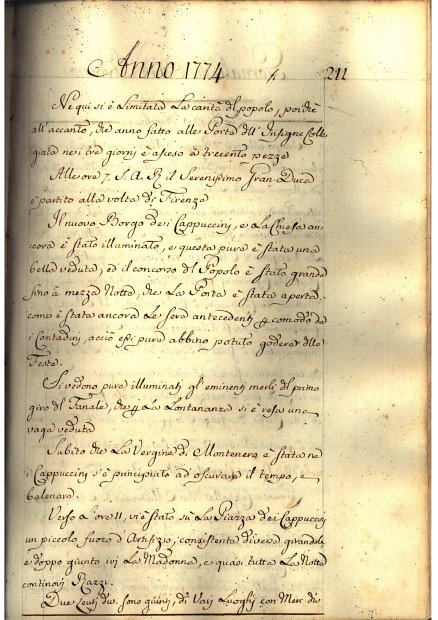 Anno 1774
211
Ne qui si è Limitata La carità del popolo, poiche
all'accanto, che anno fatto alle Porte dell' Insigne Colle-
giata nei tre giorni è asceso a trecento pezze
Alle ore 7. S. A. R. il Serenissimo Gran-Duca
è partito alla volta di Firenze
Il nuovo Borgo dei Cappuccini, e La Chiesa an-
cora è stato illuminato, e questa pure è stata una
bella veduta, ed il concorso del Popolo è stato grande
fino a mezza Notte, che La Porta è stata aperta
come è stata ancora Le sere antecedenti p comodo de
i Contadini, acciò essi pure abbino potuto godere delle
Feste.
Si vedono pure illuminati gl' eminenti merli del primo
giro del Fanale, che p La Lontananza si è resa una
vaga veduta
Subito che La Vergine di Montenero è stata ne
i Cappuccini s'è principiato ad oscurare il tempo, e
balenare.
Verso l'ore 11, vi è stato sù La Piazza dei Cappuccini
un piccolo fuoco d'Artifizio, consistente diverse girandole
e doppo giunto ivi La Madonna, e quasi tutta La Notte
continovi Razzi.
Due sono giunti, di Varj Luoghi con Merc. div